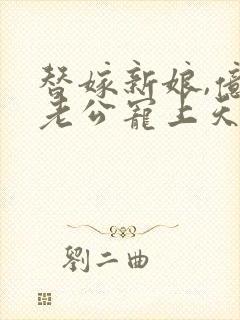 替嫁新娘,億
老公寵上天
劉二曲